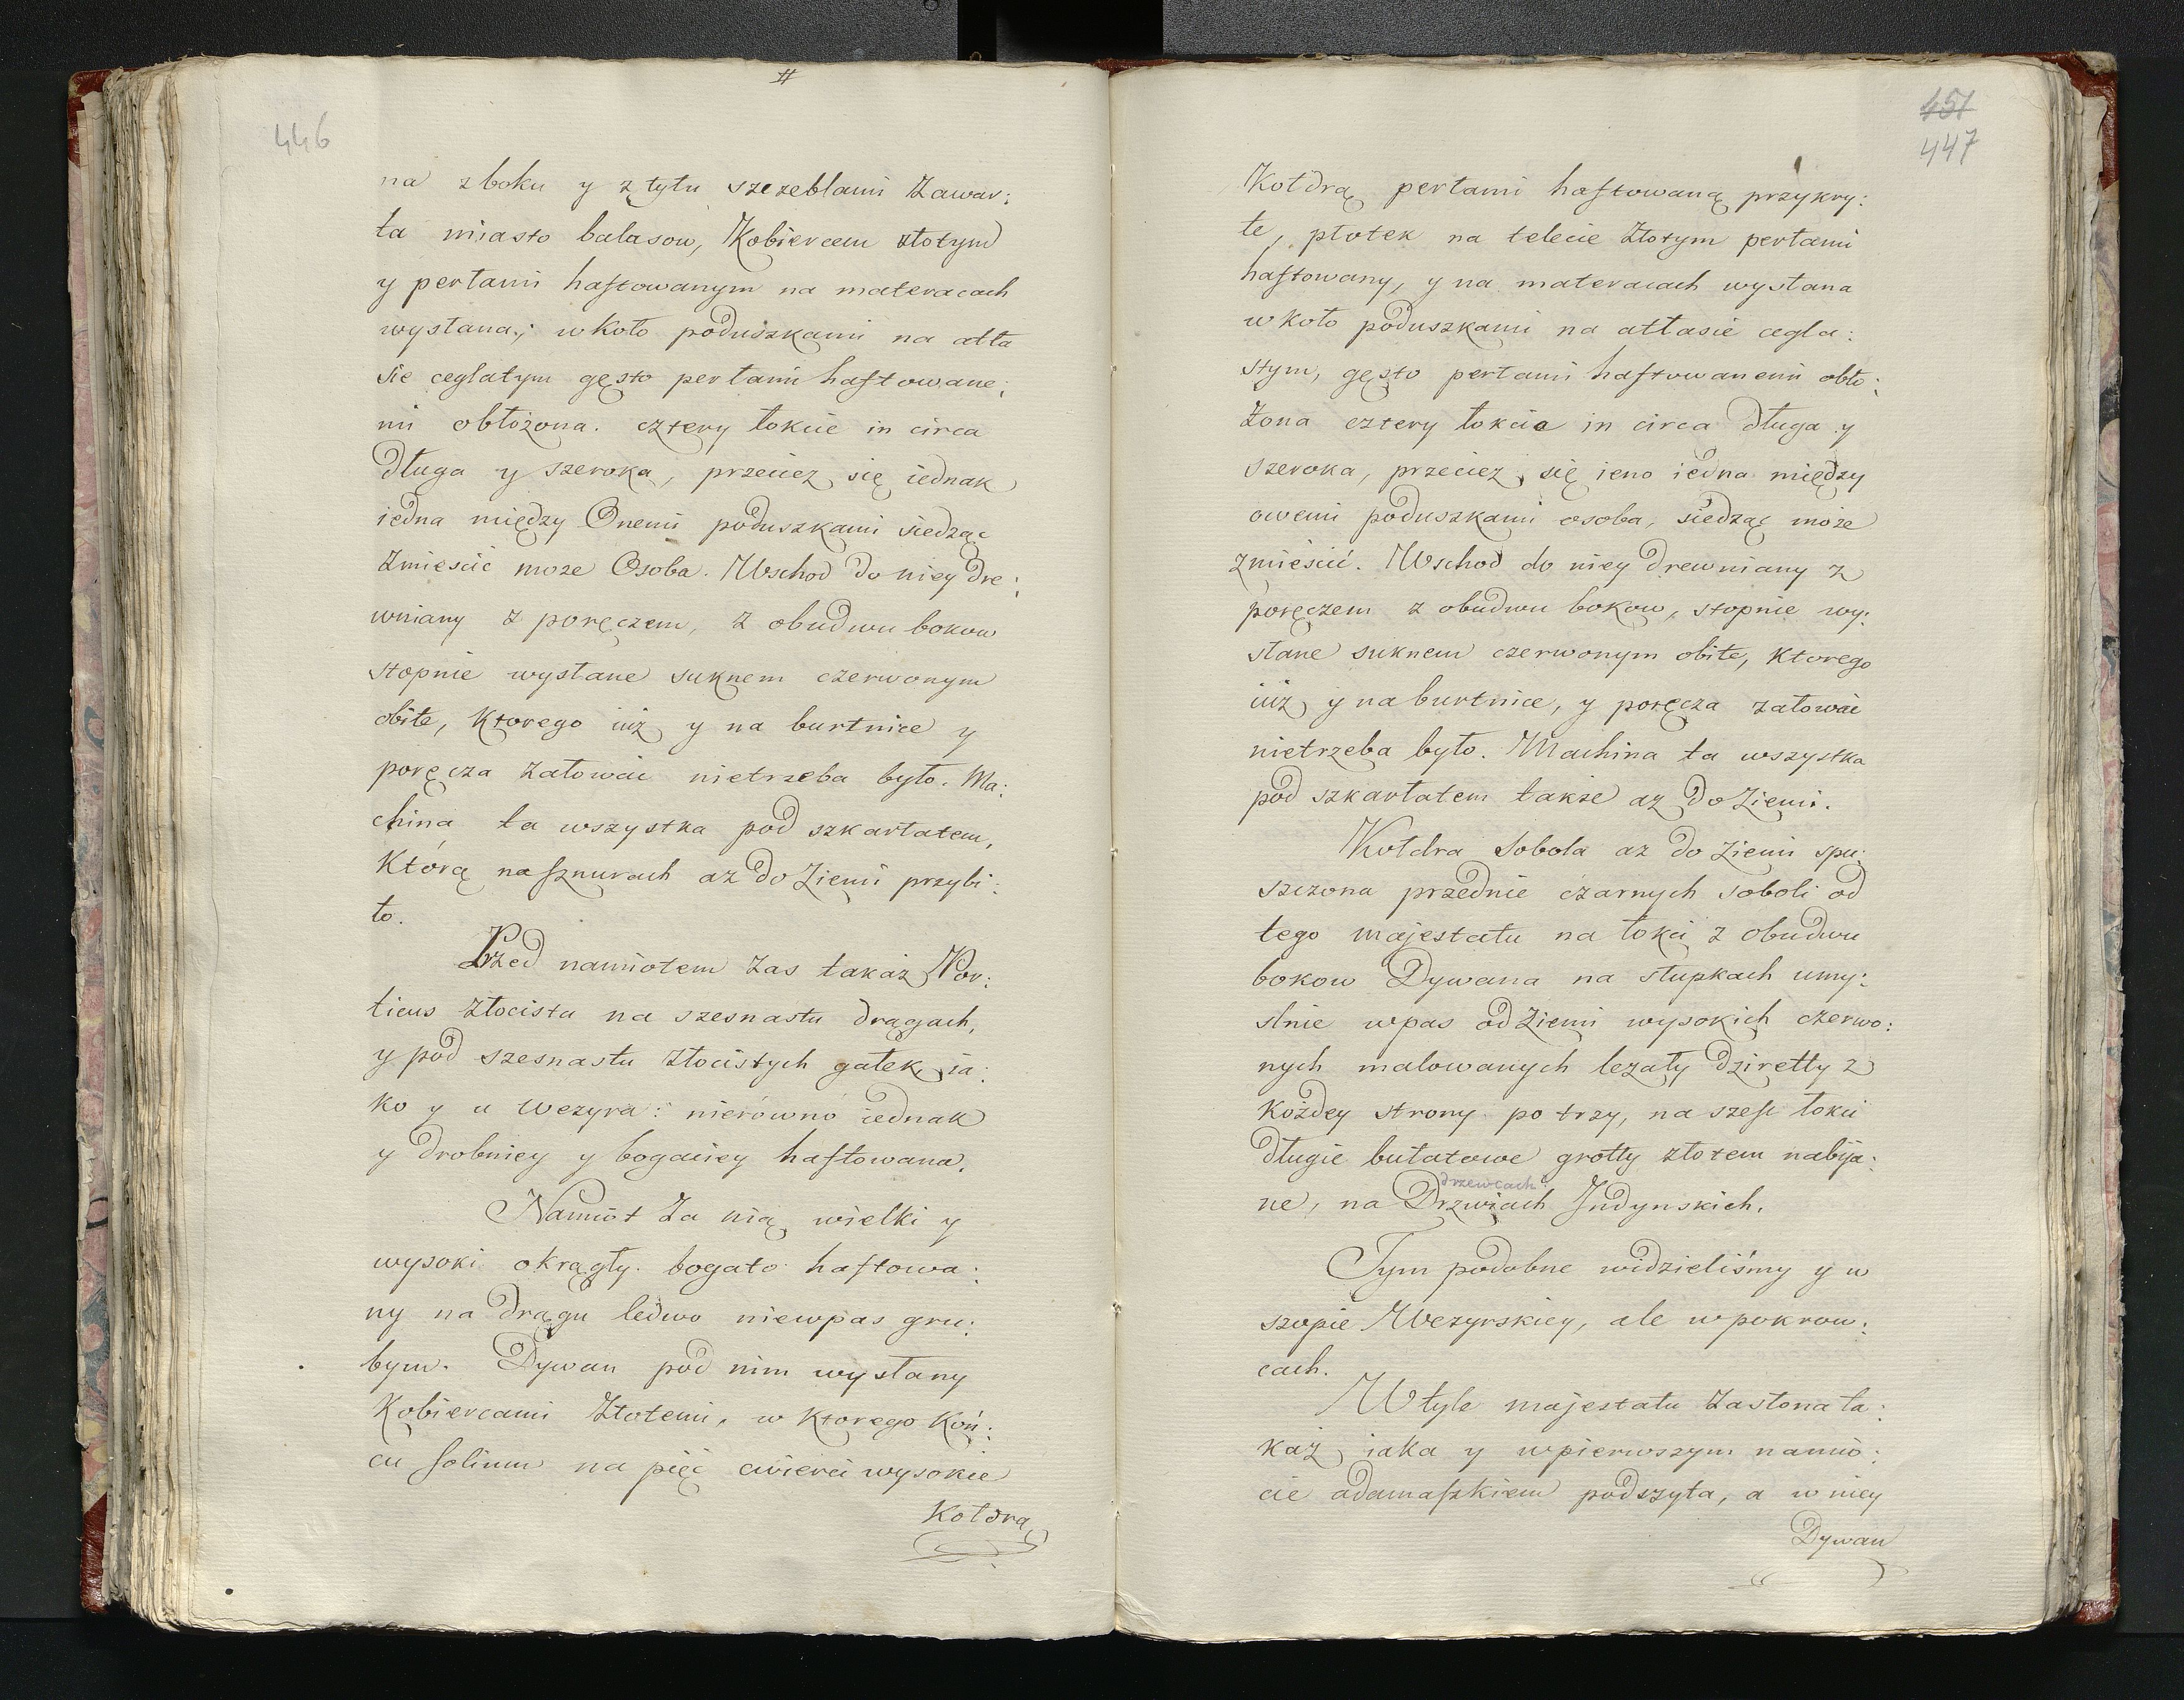 #
446
na z boku y z tyłu szczeblami zawar:
ta miasto balasow, Kobiercem złotym
y perłami haftowanym na materacach
wysłana; w koło poduszkami na atła
sie ceglatym gęsto perłami haftowane:
mi obłożona. cztery łokcie in circa
Długa y szeroka, przeciez się iednak
iedna między Onemi poduszkami siedząc
Zmieścić moze Osoba. Wschod do niey dre:
wniany z poręczem, z obudwu bokow
stopnie wysłane suknem czerwonym
obite, Ktorego iuż y na burtnice y
poręcza żałować nietrzeba było. Ma:
china ta wszystka pod szkarłatem,
Którą na sznurach aż do Ziemi przybi:
to.
Przed namiotem zas takaż Por:
ticus złocista na szesnastu drągach,
y pod szesnastu złocistych gałek, ia:
ko y u Wezyra: nierówno iednak
y drobniey y bogaciey haftowana.
Namiot za nią wielki y
wysoki okrągły bogato haftowa:
ny na drągu ledwo niewpas gru:
bym. Dywan pod nim wysłany
Kobiercami Złotemi, w Ktorego Koń:
cu solium na pięć cwierci wysokie
Kołdrą
451
447
Kołdrą perłami haftowaną przykry:
te, płotek na telecie złotym perłami
haftowany, y na materacach wysłana
w koło poduszkami na atłasie cegla:
stym, gęsto perłami haftowanemi obło:
żona cztery łokcia in circa długa y
szeroka, przeciez się ieno iedna między
owemi poduszkami osoba, siedząc może
zmieścić. Wschod do niey drewniany z
poręczem z obudwu bokow, stopnie wy:
słane suknem czerwonym obite, Ktorego
iuż y na burtnice, y poręcza żałować
nietrzeba było. Machina ta wszystka
pod szkarłatem także aż do Ziemi.
Kołdra Sobola aż do Ziemi spu:
szczona przednie czarnych soboli od
tego majestatu na łokci z obudwu
bokow Dywana na słupkach umy:
slnie wpas od Ziemi wysokich czerwo:
nych malowanych lezały Dziretty z
Kożdey strony po trzy, na szesc łokci
długie bułatowe grotty złotem nabija:
drzewcach
ne, na Drzwiach Indynskich.
Tym podobne widzieliśmy y w
szopie Wezyrskiey, ale w pokrow:
cach.
W tyle majestatu Zasłona ta:
każ iaka y w pierwszym namio:
cie adamaszkiem podszyta, a w niey
Dywan